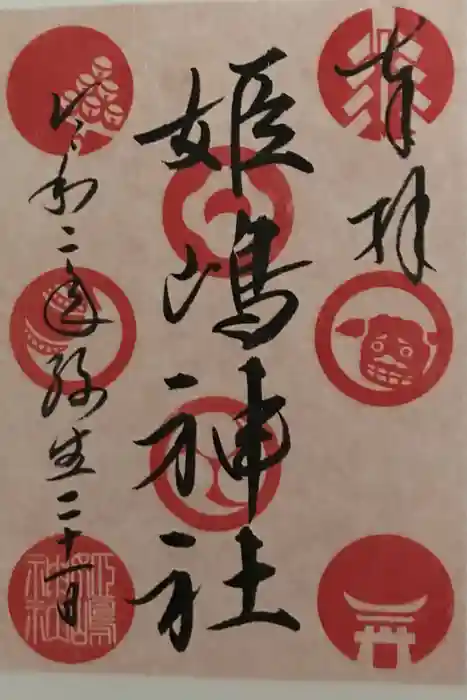 奉拝
姫嶋神社
令和二年弥生二十一日
姫嶋神社